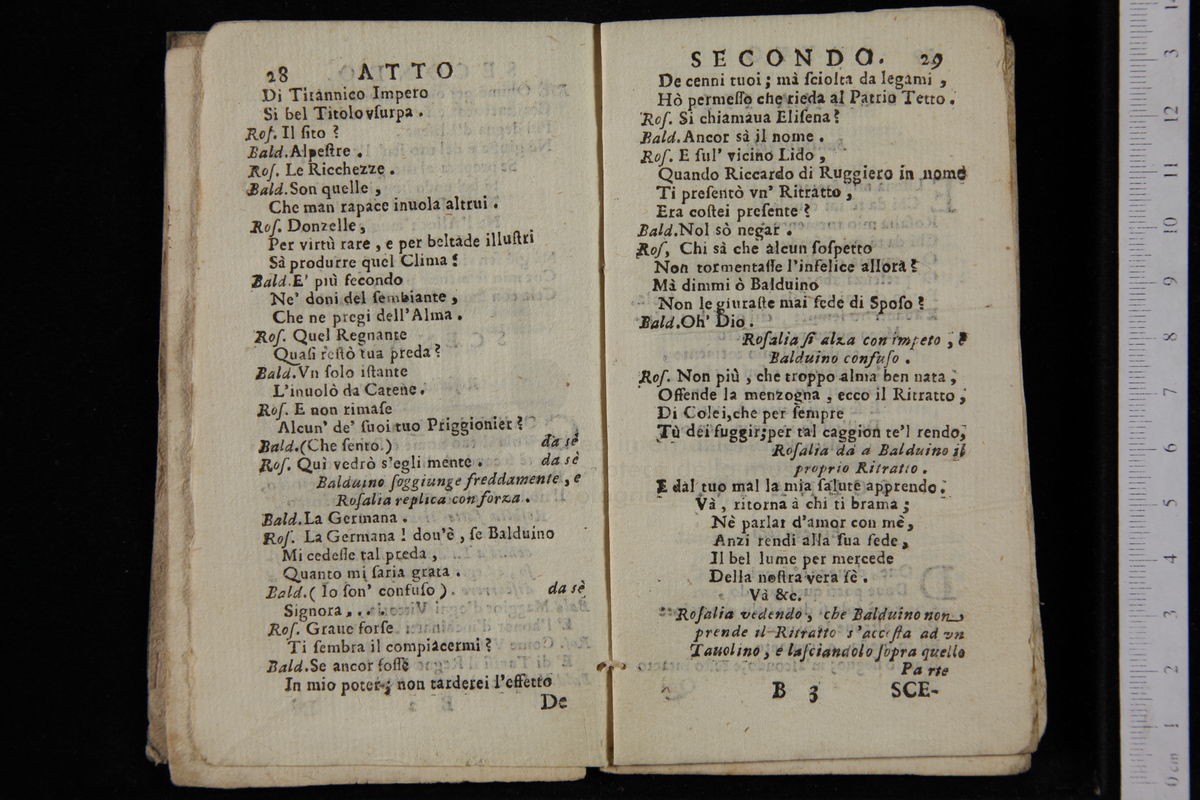 28 ATTO
Di Titannico Impero
Si bel Titolo vſurpa .
Roſ. Il ſito ?
Bald. Alpeſtre .
Roſ. Le Ricchezze .
Bald. Son quelle ,
Che man rapace inuola altrui .
Roſ. Donzelle ,
Per virtù rare , e per beltade illuſtri
Sà produrre quel Clima ?
Bald. E' più fecondo
Ne' doni del ſembiante ,
Che ne pregi dell'Alma .
Roſ. Quel Regnante
Quaſi reſtò tua preda ?
Bald. Vn ſolo iſtante
L'inuolò da Catene .
Roſ. E non rimaſe
Alcun' de' ſuoi tuo Priggionier ?
Bald. (Che ſento.) da sè
Roſ. Quì vedrò s'egli mente . da sè
Balduino ſoggiunge freddamente , e
Roſalia replica con forza .
Bald. La Germana .
Roſ. La Germana ! dou'è , ſe Balduino
Mi cedeſſe tal preda ,
Quanto mi ſaria grata .
Bald. ( Io ſon' confuſo ) . da sè
Signora . . . .
Roſ. Graue forſe
Ti ſembra il compiacermi ?
Bald. Se ancor foſſe
In mio poter ; non tarderei l'effetto
De
SECONDO. 29
De cenni tuoi ; mà ſciolta da legami ,
Hò permeſſo che rieda al Patrio Tetto .
Roſ. Si chiamaua Eliſena ?
Bald. Ancor sà il nome .
Roſ. E ſul' vicino Lido ,
Quando Riccardo di Ruggiero in nome
Ti preſentò vn' Ritratto ,
Era coſtei preſente ?
Bald. Nol sò negar .
Roſ, Chi sà che alcun ſoſpetto
Non tormentaſſe l'infelice allora ?
Mà dimmi ò Balduino
Non le giuraſte mai fede di Spoſo ?
Bald. Oh' Dio .
Roſalia ſi alza con impeto , e
Balduino confuſo .
Roſ. Non più , che troppo alma ben nata ,
Offende la menzogna , ecco il Ritratto ,
Di Colei, che per ſempre
Tù dei fuggir; per tal caggion te'l rendo,
Roſalia dà a Balduino il
proprio Ritratto .
E dal tuo mal la mia ſalute apprendo .
Và , ritorna à chi ti brama ;
Nè parlar d'amor con mè ,
Anzi rendi alla ſua fede ,
Il bel lume per mercede
Della noſtra vera fè .
Và &c.
Roſalia vedendo , che Balduino non
prende il Ritratto s'accoſta ad vn
Tauolino , e laſciandolo ſopra quello
Parte
B 3 SCE-